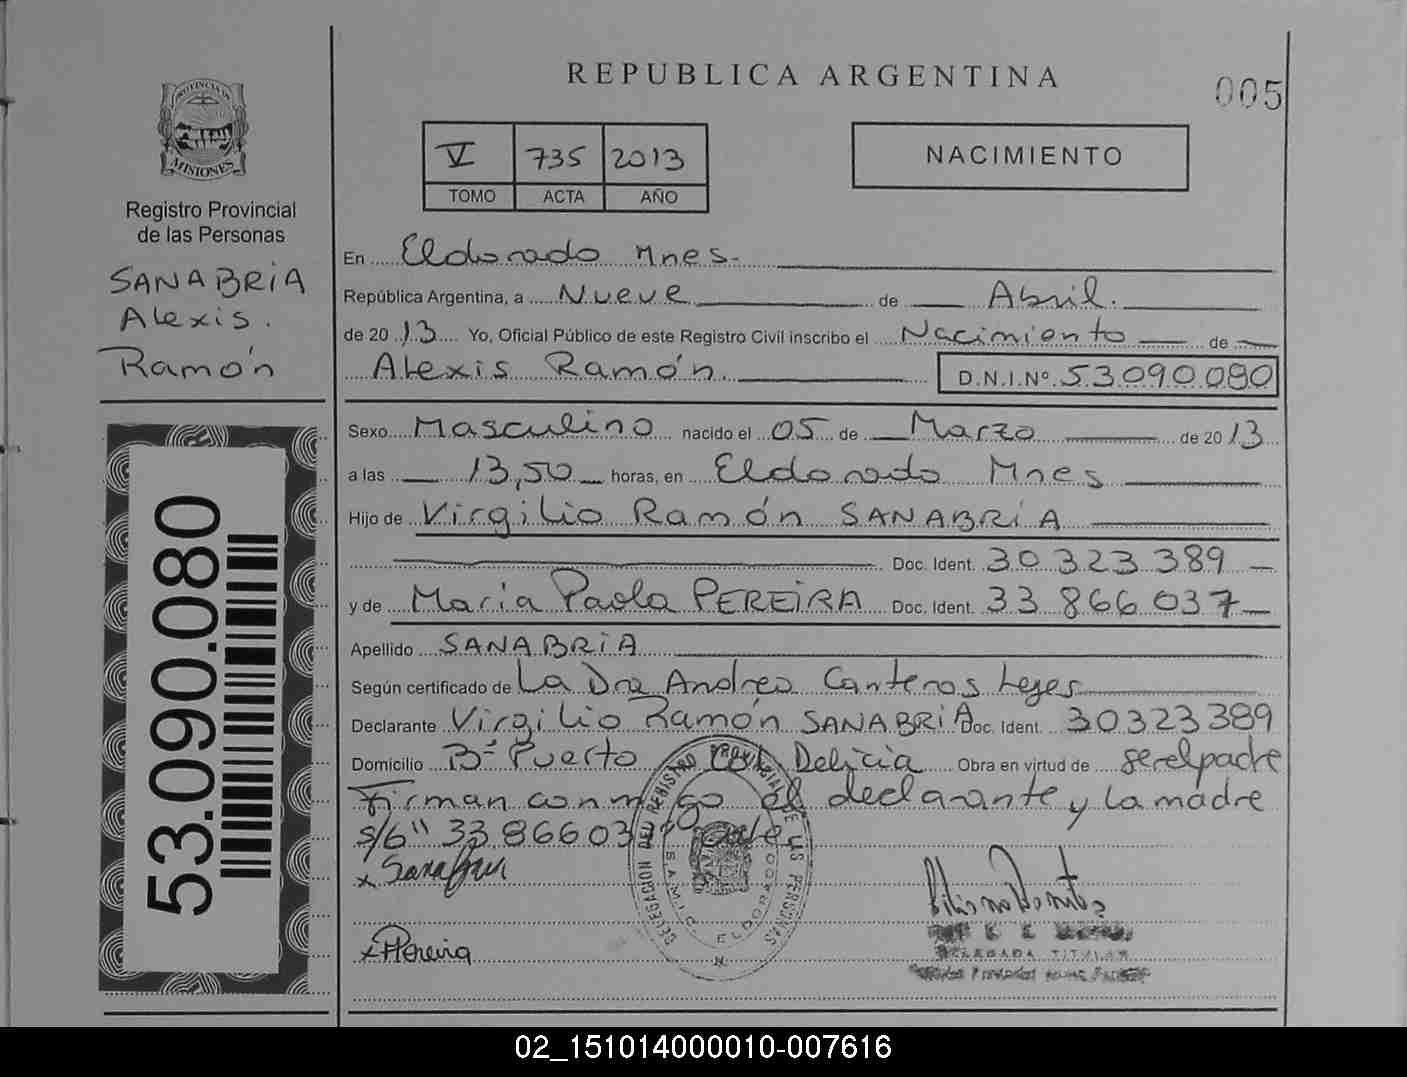 REPUBLICA ARGENTINA
005
PROVINCIA DE
MISIONES
Registro Provincial
de las Personas
SANABRIA
Alexis.
Ramón
53.090.080
V 735 2013
TOMO ACTA AÑO
NACIMIENTO
En Eldorado Mnes.
República Argentina, a Nueve de Abril.
de 2013 Yo, Oficial Público de este Registro Civil inscribo el Nacimiento de
Alexis Ramón. D.N.I.Nº. 53090080
Sexo Masculino nacido el 05 de Marzo de 2013
a las 13,50 horas, en Eldorado Mnes
Hijo de Virgilio Ramón SANABRIA
Doc. Ident. 30323389
y de María Paola PEREIRA Doc. Ident. 33 866 037
Apellido SANABRIA
Según certificado de La Dra Andrea Canteros Leyes
Declarante Virgilio Ramón SANABRIA Doc. Ident. 30323389
Domicilio Bº Puerto Delicia Obra en virtud de ser el padre
Firman conmigo el declarante y la madre
s/6" 33866037 vale
x Sanabria
x Pereira
DELEGACION DEL REGISTRO PROVINCIAL DE LAS PERSONAS
S.A.M.I.C. ELDORADO
DELEGADA TITULAR
02_151014000010-007616